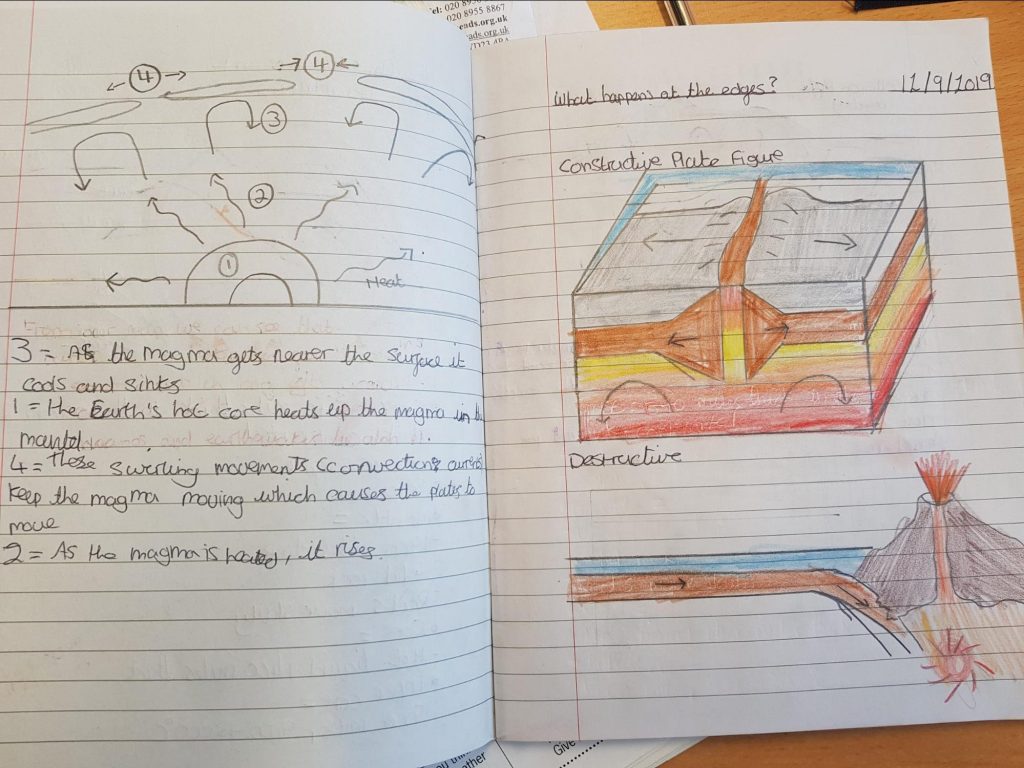 4
4
3
2
1
Heat
3 = As the magma gets nearer the surface it
cools and sinks
1 = the Earth's hot core heats up the magma in the
mantel
4 = these swirling movements (convection currents
keep the magma moving which causes the plates to
move
2 = As the magma is heated, it rises.
020 8955 8867
eads.org.uk
ads.org.uk
What happens at the edges?
12/9/2019
Constructive Plate Figure
Destructive
Give